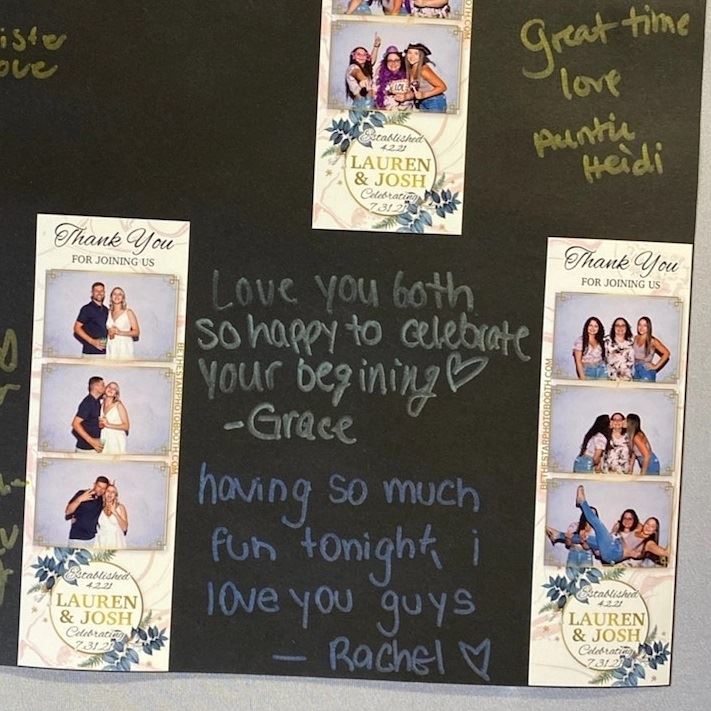 Great time
love
Auntie
Heidi
Established
4.2.21
LAUREN
& JOSH
Celebrating
7.31.21
Thank You
FOR JOINING US
BETHESTARPHOTOBOOTH.COM
Established
4.2.21
LAUREN
& JOSH
Celebrating
7.31.21
Love you both
so happy to celebrate
your begining ♡
-Grace
having so much
fun tonight, i
love you guys
- Rachel ♡
Thank You
FOR JOINING US
BETHESTARPHOTOBOOTH.COM
Established
4.2.21
LAUREN
& JOSH
Celebrating
7.31.21